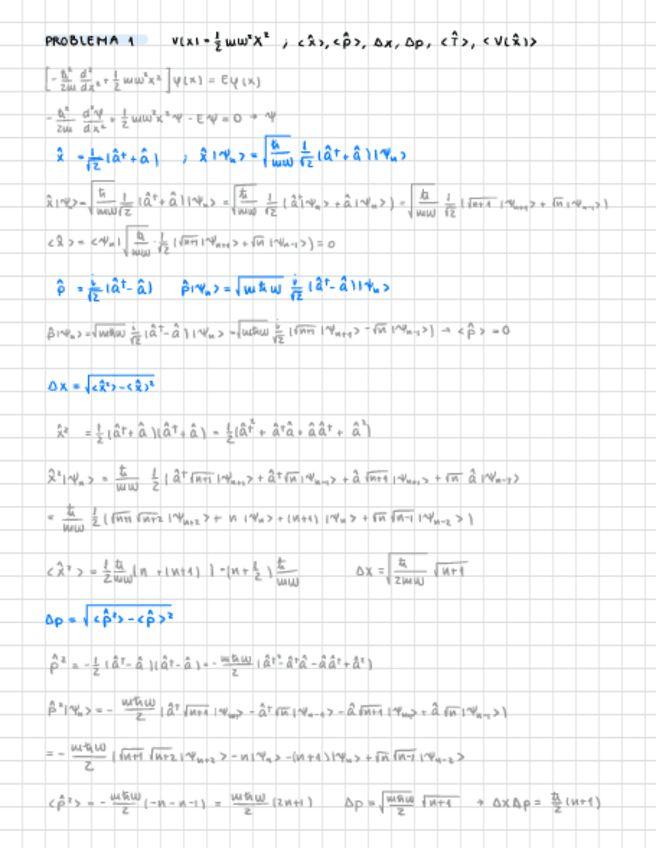 PROBLEMA 1   V(x) = 1/2 mω²x² ; <x̂>, <p̂>, Δx, Δp, <T̂>, <V(x̂)>
[-ħ²/2m d²/dx² + 1/2 mω²x²] ψ(x) = Eψ(x)
-ħ²/2m d²ψ/dx² + 1/2 mω²x²ψ - Eψ = 0 → ψ
x̂ = 1/√2 (â† + â) ; x̂|ψₙ> = √(ħ/mω) 1/√2 (â† + â)|ψₙ>
x̂|ψₙ> = √(ħ/mω) 1/√2 (â† + â)|ψₙ> = √(ħ/mω) 1/√2 (â†|ψₙ> + â|ψₙ>) = √(ħ/mω) 1/√2 (√(n+1) |ψₙ₊₁> + √n |ψₙ₋₁>)
<x̂> = <ψₙ| √(ħ/mω) · 1/√2 (√(n+1) |ψₙ₊₁> + √n |ψₙ₋₁>) = 0
p̂ = i/√2 (â† - â)   p̂|ψₙ> = √(mħω) i/√2 (â† - â)|ψₙ>
p̂|ψₙ> = √(mħω) i/√2 (â† - â)|ψₙ> = √(mħω) i/√2 (√(n+1) |ψₙ₊₁> - √n |ψₙ₋₁>) → <p̂> = 0
Δx = √(<x̂²> - <x̂>²)
x̂² = 1/2 (â† + â)(â† + â) = 1/2 (â†² + â†â + ââ† + â²)
x̂²|ψₙ> = ħ/mω 1/2 (â†√(n+1) |ψₙ₊₁> + â†√n |ψₙ₋₁> + â√(n+1) |ψₙ₊₁> + √n â|ψₙ₋₁>
= ħ/mω 1/2 (√(n+1) √(n+2) |ψₙ₊₂> + n|ψₙ> + (n+1)|ψₙ> + √n √(n-1) |ψₙ₋₂>)
<x̂²> = 1/2 ħ/mω (n + (n+1)) = (n + 1/2) ħ/mω   Δx = √(ħ/2mω) √(n+1)
Δp = √(<p̂²> - <p̂>²)
p̂² = -1/2 (â† - â)(â† - â) = -mħω/2 (â†² - â†â - ââ† + â²)
p̂²|ψₙ> = -mħω/2 (â†√(n+1) |ψₙ₊₁> - â†√n |ψₙ₋₁> - â√(n+1) |ψₙ₊₁> + â√n |ψₙ₋₁>)
= -mħω/2 (√(n+1) √(n+2) |ψₙ₊₂> - n|ψₙ> - (n+1)|ψₙ> + √n √(n-1) |ψₙ₋₂>
<p̂²> = -mħω/2 (-n-n-1) = mħω/2 (2n+1)   Δp = √(mħω/2) √(n+1) → ΔxΔp = ħ/2 (n+1)